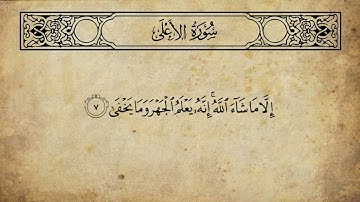 سُورَةُ الأَعْلَى
إِلَّا مَا شَآءَ ٱللَّهُ ۚ إِنَّهُۥ يَعْلَمُ ٱلْجَهْرَ وَمَا يَخْفَىٰ ٧